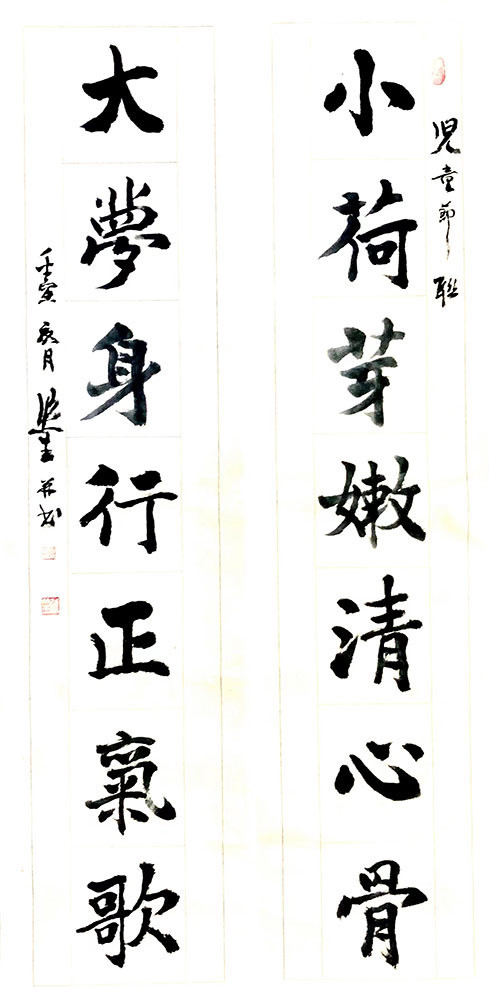 兒童節聯
小荷芽嫩清心骨
大夢身行正氣歌
壬寅 夏月